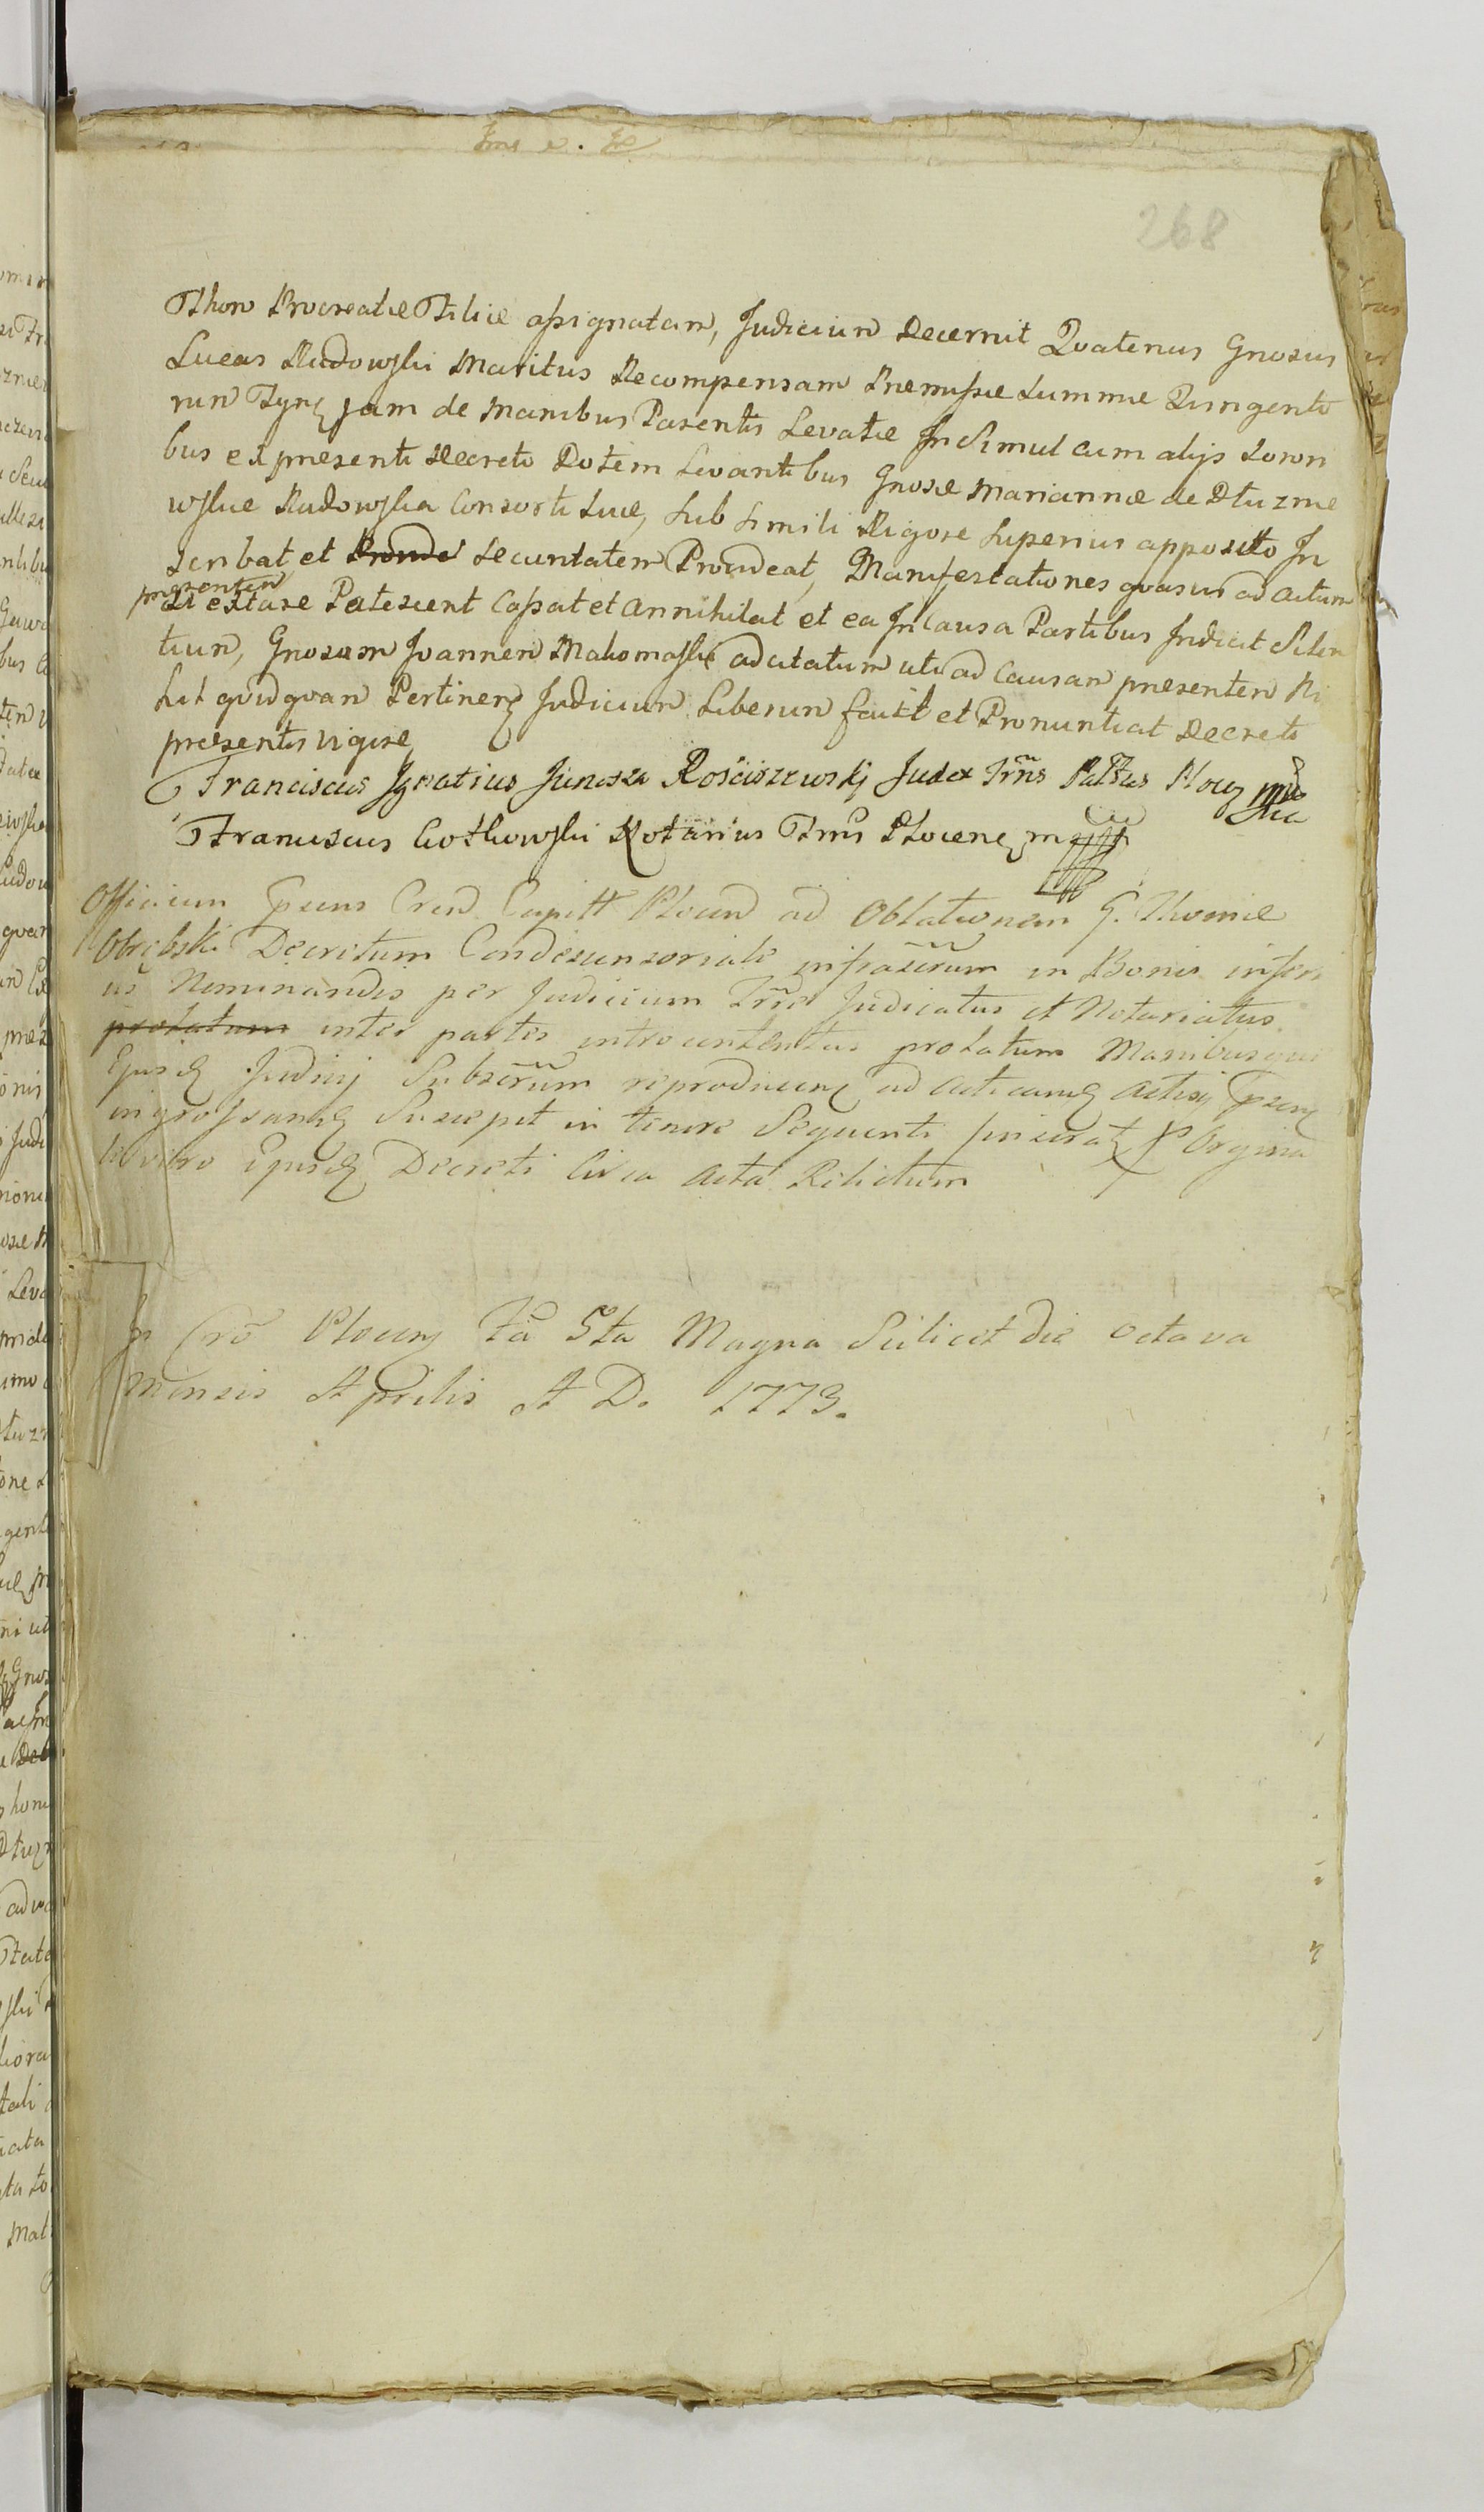 268
Thori Procreatæ Filiæ assignatam, Judicium Decernit Qvatenus Gnosus
Lucas Rudowski Maritus Recompensam Præmissæ Summæ Quingento
rum Tynf jam de Manibus Parentis Levatæ In Simul cum alijs Soror
bus ex præsenti Decreto Dotem Levantibus Gnosæ Mariannæ de Dłuznie
wskie Rudowska Consorti Suæ, Sub Simili Rigore Superius apposito In
scribat et Provide Securitatem Provideat, Manifestationes qvasvis ad actum
præsentem
Si extare Patescent Cassat et Annihilat et ea In Causa Partibus Indicit Silen
tium, Gnosum Joannem Makomaski adcitatum uti ad Causam præsentem Ni
hil qvidqvam Pertinen Judicium Liberum facit et Pronuntiat Decreti
præsentis vigore
Franciscus Ignatius Junosza Rościszewskj Judex Trñs Paltus Plocen mp
Franciscus Kotkowski Notarius Trris Plocen mp
Officium Præsens Cren Capitt Plocen ad Oblationem G. Thomæ
Obrębski Decretum Condescensoriale infrascrum in Bonis inferi
us Nominandis per Judicium Trre Judicatus et Notariatus
prolatum inter partes introcontentas prolatum Manibusque
Ejusd Judicij Subscrum reproducen ad acticand Actisq Præsen
ingrossand Suscepit in tenore Seqventi inserat Orgina
li vero Ejusd Decreti Circa Acta Relictum
In Crō Plocen Fa 5ta Magna Scilicet die octava
Mensis Aprilis A D. 1773.